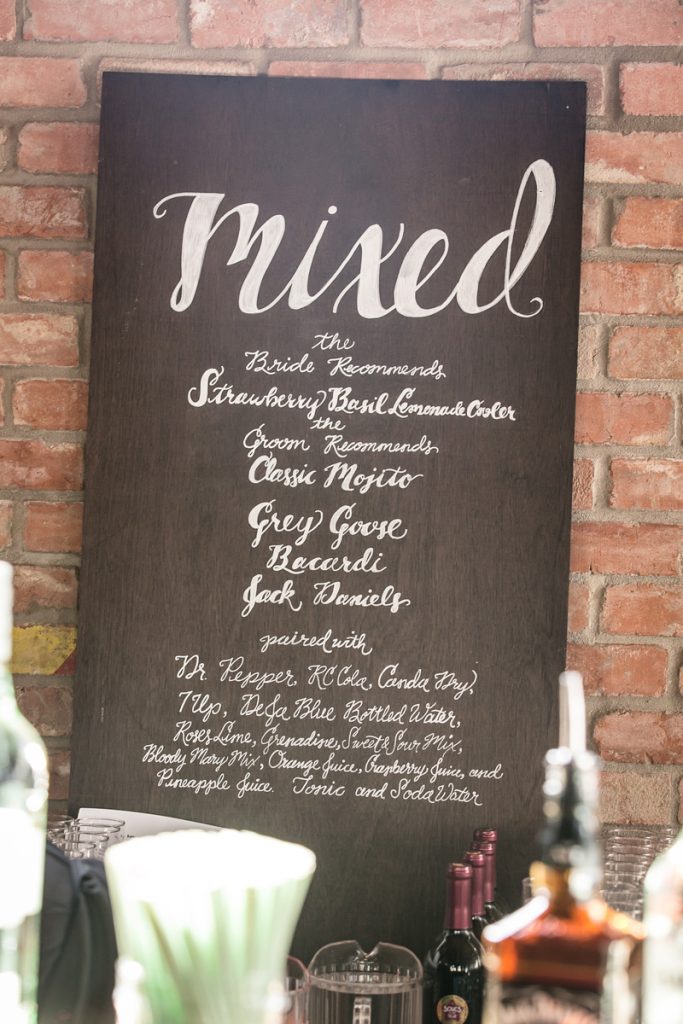 mixed
the
Bride Recommends
Strawberry Basil Lemonade Cooler
the
Groom Recommends
Classic Mojito
Grey Goose
Bacardi
Jack Daniels
paired with
Dr. Pepper, RC Cola, Canda Dry,
7 Up, DeJa Blue Bottled Water,
Roses Lime, Grenadine, Sweet & Sour Mix,
Bloody Mary Mix, Orange Juice, Cranberry Juice, and
Pineapple Juice. Tonic and Soda Water